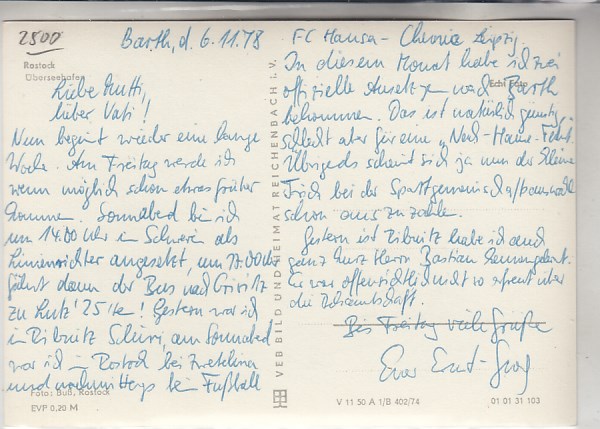 2500
Rostock
Überseehafen
Barth, d. 6.11.78
Liebe Mutti,
lieber Vati!
Nun beginnt wieder eine lange
Woche. Am Freitag werde ich
wenn möglich schon etwas früher
kommen. Sonnabend bin ich
um 14.00 Uhr in Schwerin als
Linienrichter angesetzt, um 17.00 Uhr
fährt dann der Bus nach
zu Lutz' 25'ten! Gestern war ich
in Ribnitz am Sonnabend
war ich in Rostock bei
und nachmittags beim Fußball
Foto: Buß, Rostock
EVP 0,20 M
VEB BILD UND HEIMAT REICHENBACH i. V.
FC Hansa - Chemie Leipzig.
In diesem Monat habe ich zwei
offizielle Ansetzungen nach Barth
Echt Foto
bekommen. Das ist natürlich günstig,
schlecht aber für eine
Übrigens scheint sich ja nun der kleine
Trick bei der
schon auszuzahlen.
Gestern in Ribnitz habe ich auch
ganz kurz Herrn Bastian kennengelernt.
Er war offensichtlich nicht so erfreut über
die Bekanntschaft.
Bis Freitag viele Grüße
Euer Ernst-
V 11 50 A 1/B 402/74
01 01 31 103